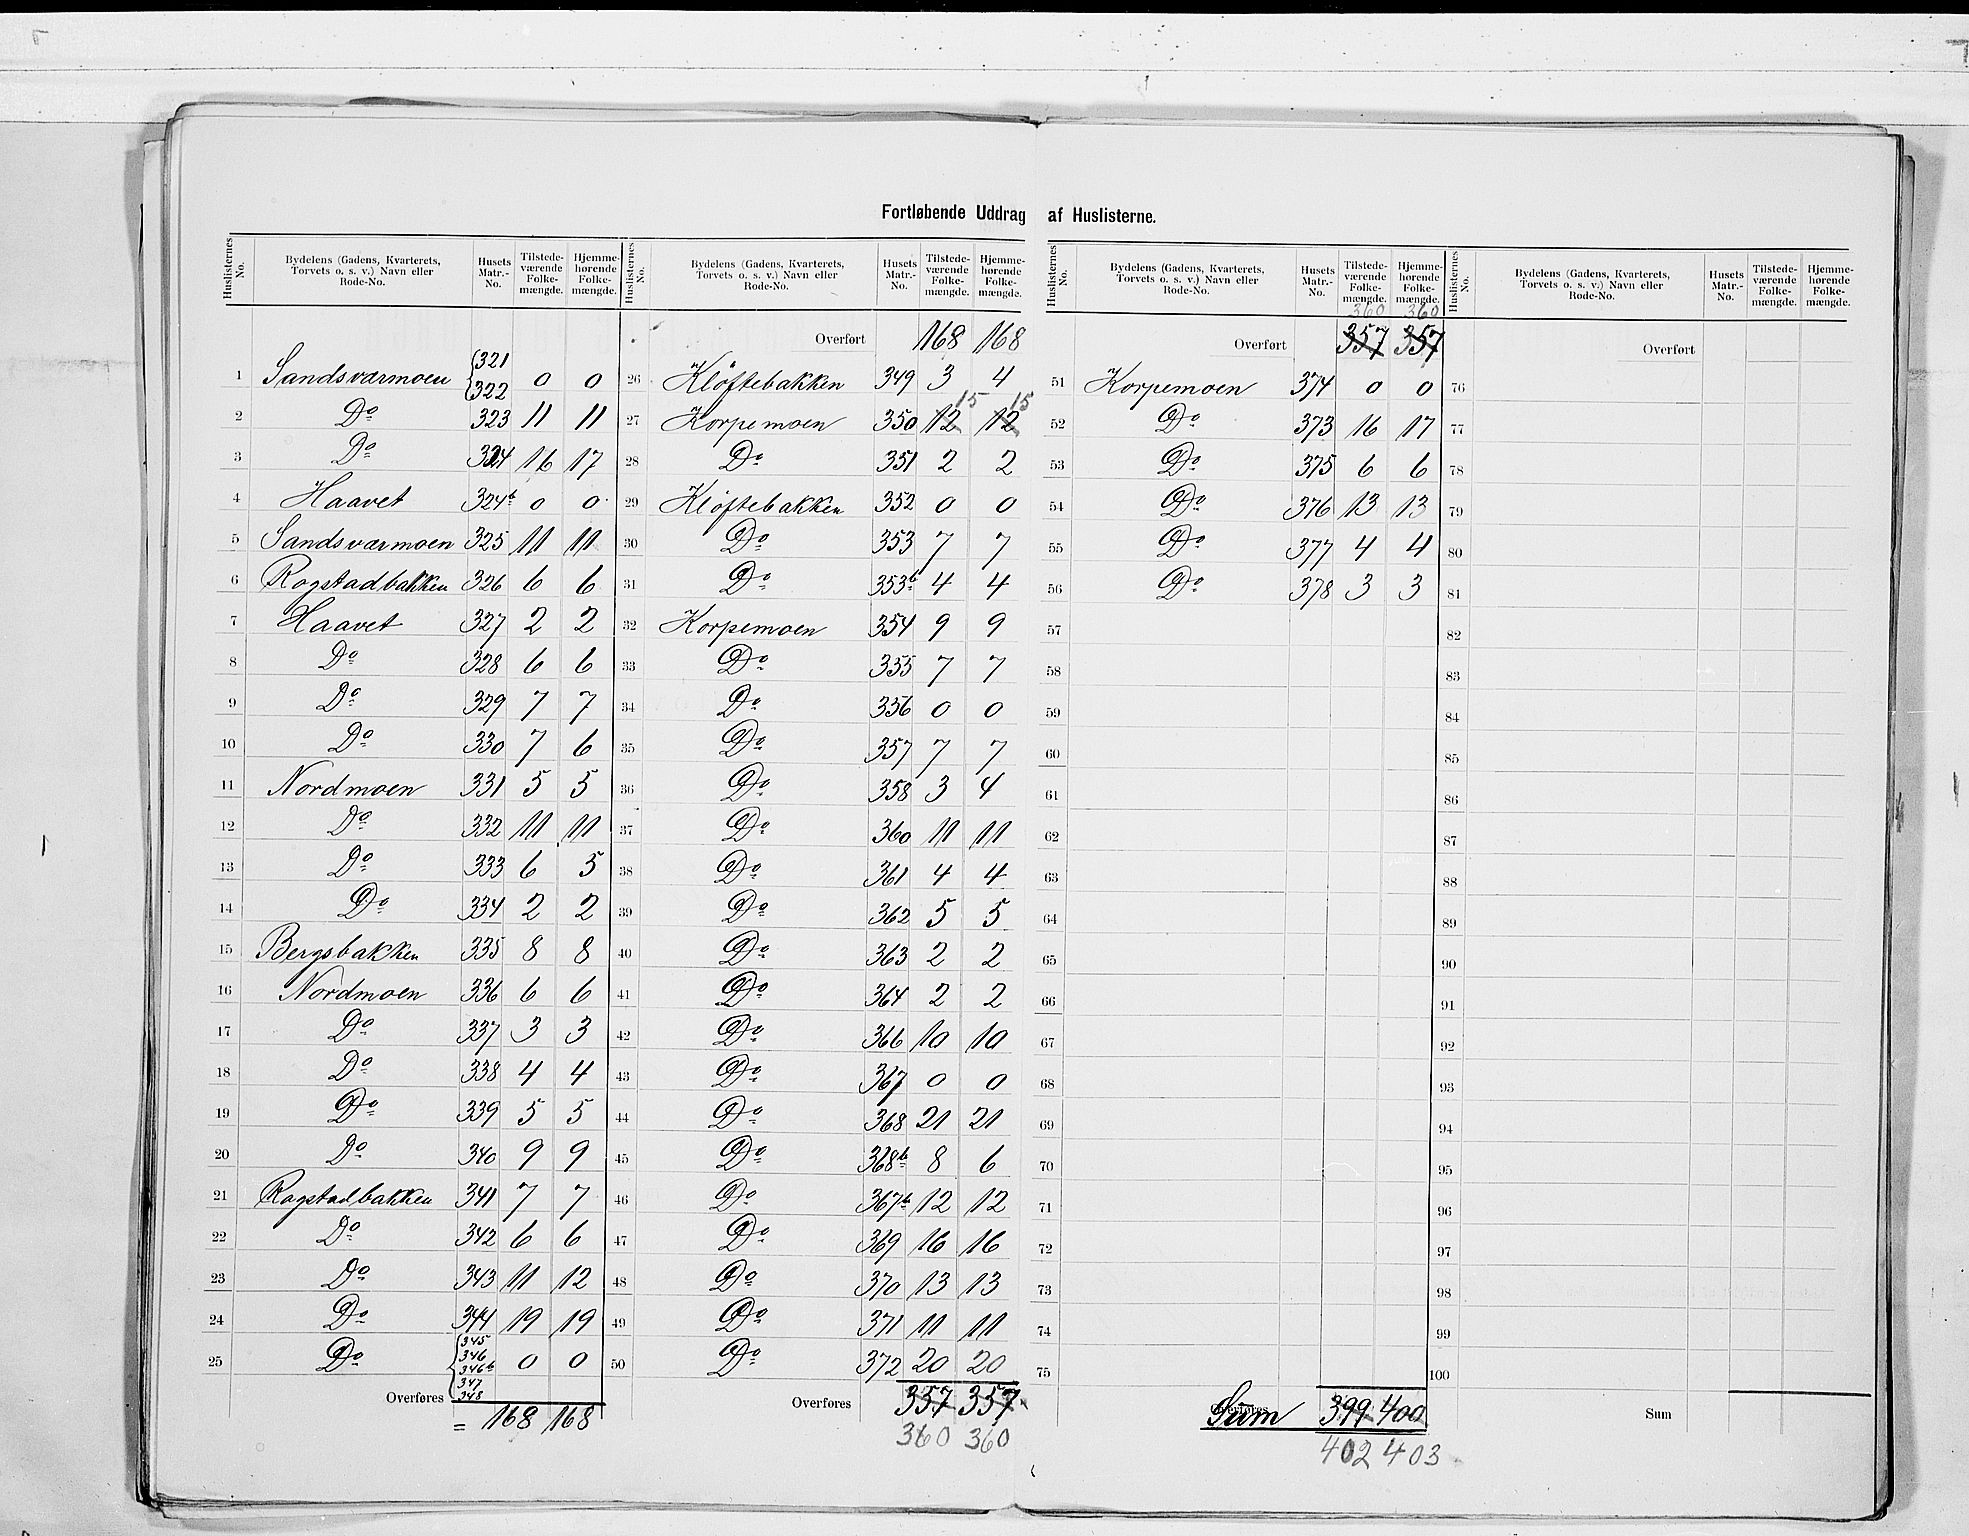 Fortløbende Uddrag af Huslisterne.
Huslisternes No. | Bydelens (Gadens, Kvarterets, Torvets o. s. v.) Navn eller Rode-No. | Husets Matr.-No. | Tilstedeværende Folkemængde. | Hjemmehørende Folkemængde.
1 Sandsværmoen {321 {322 0 0
2 Do 323 11 11
3 Do 324 16 17
4 Haavet 324b 0 0
5 Sandsværmoen 325 11 11
6 Rogstadbakken 326 6 6
7 Haavet 327 2 2
8 Do 328 6 6
9 Do 329 7 7
10 Do 330 7 6
11 Nordmoen 331 5 5
12 Do 332 11 11
13 Do 333 6 5
14 Do 334 2 2
15 Bergsbakken 335 8 8
16 Nordmoen 336 6 6
17 Do 337 3 3
18 Do 338 4 4
19 Do 339 5 5
20 Do 340 9 9
21 Rogstadbakken 341 7 7
22 Do 342 6 6
23 Do 343 11 12
24 Do 344 19 19
25 Do {345 346 346b 347 348 0 0
Overføres = 168 168
Huslisternes No. | Bydelens (Gadens, Kvarterets, Torvets o. s. v.) Navn eller Rode-No. | Husets Matr.-No. | Tilstedeværende Folkemængde. | Hjemmehørende Folkemængde.
Overført 168 168
26 Kløftebakken 349 3 4
27 Korpemoen 350 12 15 12 15
28 Do 351 2 2
29 Kløftebakken 352 0 0
30 Do 353 7 7
31 Do 353b 4 4
32 Korpemoen 354 9 9
33 Do 355 7 7
34 Do 356 0 0
35 Do 357 7 7
36 Do 358 3 4
37 Do 360 11 11
38 Do 361 4 4
39 Do 362 5 5
40 Do 363 2 2
41 Do 364 2 2
42 Do 366 10 10
43 Do 367 0 0
44 Do 368 21 21
45 Do 368b 8 6
46 Do 367b 12 12
47 Do 369 16 16
48 Do 370 13 13
49 Do 371 11 11
50 Do 372 20 20
Overføres 357 357
360 360
Huslisternes No. | Bydelens (Gadens, Kvarterets, Torvets o. s. v.) Navn eller Rode-No. | Husets Matr.-No. | Tilstedeværende Folkemængde. | Hjemmehørende Folkemængde.
360 360
Overført 357 357
51 Korpemoen 374 0 0
52 Do 373 16 17
53 Do 375 6 6
54 Do 376 13 13
55 Do 377 4 4
56 Do 378 3 3
57
58
59
60
61
62
63
64
65
66
67
68
69
70
71
72
73
74
75
Overføres Sum 399 400
402 403
Huslisternes No. | Bydelens (Gadens, Kvarterets, Torvets o. s. v.) Navn eller Rode-No. | Husets Matr.-No. | Tilstedeværende Folkemængde. | Hjemmehørende Folkemængde.
Overført
76
77
78
79
80
81
82
83
84
85
86
87
88
89
90
91
92
93
94
95
96
97
98
99
100
Sum